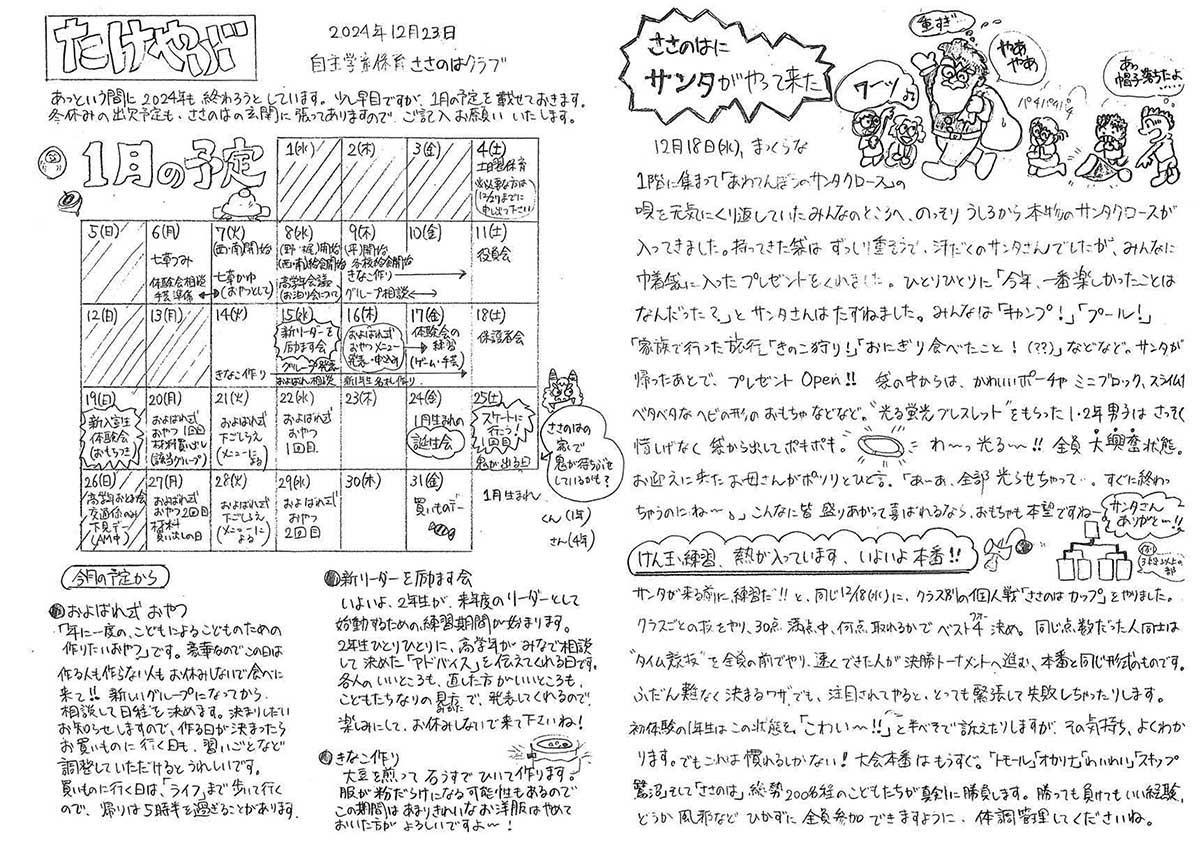 たけやぶ
2024年12月23日
自主学童保育 ささのはクラブ
あっという間に2024年も終わろうとしています。少し早目ですが、1月の予定を載せておきます。
冬休みの出欠予定も、ささのはの玄関に張ってありますので、ご記入お願いいたします。
1月の予定
1(水) 2(木) 3(金) 4(土)
土曜保育
5(日) 6(月) 7(火) 8(水) 9(木) 10(金) 11(土)
七草つみ
体験会相談
手芸準備
(西・南)開始
七草がゆ
(おやつとして)
(野・梶)開始
(西・南)給食開始
高学年会議
(お泊り会について)
(平)開始
各校給食開始
きなこ作り
グループ相談
役員会
12(日) 13(月) 14(火) 15(水) 16(木) 17(金) 18(土)
きなこ作り
新リーダーを
励ます会
グループ発表
およばれ相談
およばれ式
おやつメニュー
発表・申込み
新1年生名札作り
体験会の
練習
(ゲーム・手芸)
保護者会
19(日) 20(月) 21(火) 22(水) 23(木) 24(金) 25(土)
新入室生
体験会
(おもちつき)
およばれ式
おやつ1回目
材料買い出し
(該当グループ)
およばれ式
下ごしらえ
(メニューによる)
およばれ式
おやつ
1回目
1月生まれの
誕生会
スケートに
行こう!
1回目
鬼が出る日
26(日) 27(月) 28(火) 29(水) 30(木) 31(金)
高学年お始め会
交通係のみ
下見デー
(AM中)
およばれ式
おやつ2回目
材料
買い出しの日
およばれ式
下ごしらえ
(メニューによる)
およばれ式
おやつ
2回目
買いものデー
ささのはの
家で
鬼が待ちぶせ
しているかも?
1月生まれ
くん(1年)
さん(4年)
今月の予定から
およばれ式 おやつ
「年に一度の、こどもによるこどものための
作りたいおやつ」です。豪華なのでこの日は
作る人も作らない人もお休みしないで食べに
来て!! 新しいグループになってから
相談して日程を決めます。決まりしだい
お知らせしますので、作る日が決まったら
お買いものに行く日も、習いごとなど
調整していただけるとうれしいです。
買いものに行く日は、「ライフ」まで歩いて行く
ので、帰りは5時半を過ぎることがあります。
新リーダーを励ます会
いよいよ、2年生が、来年度のリーダーとして
始動するための練習期間が始まります。
2年生ひとりひとりに、高学年が みなで相談
して決めた「アドバイス」を伝えてくれる日です。
各人のいいところも、直した方がいいところも、
こどもたちなりの見方で、発表してくれるので、
楽しみにして、お休みしないで来て下さいね!
きなこ作り
大豆を煎って 石うすでひいて作ります。
服が粉だらけになる可能性もあるので
この期間はあまりきれいなお洋服はやめて
おいた方が よろしいですよ〜!
ささのはに
サンタがやって来た
ワーッ
重すぎ…
やあ
やあ
パチパチパチ
あっ
帽子落ちたよ
12月18日(水)、まっくらな
1階に集まって「あわてんぼうのサンタクロース」の
唄を元気にくり返していたみんなのところへ、のっそりうしろから本物のサンタクロースが
入ってきました。持ってきた袋は ずっしり重そうで、汗だくのサンタさんでしたが、みんなに
巾着袋に入ったプレゼントをくれました。ひとりひとりに「今年、一番楽しかったことは
なんだった?」とサンタさんはたずねました。みんなは「キャンプ!」「プール!」
「家族で行った旅行」「きのこ狩り!」「おにぎり食べたこと!(??)」などなど。サンタが
帰ったあとで、プレゼントOpen!! 袋の中からは、かわいいポーチや ミニブロック、スライム、
ベタベタなヘビの形のおもちゃなどなど。“光る蛍光ブレスレット”をもらった1・2年男子はさっそく
惜しげなく袋から出してポキポキ。 わ〜っ光る〜!! 全員 大興奮状態。
お迎えに来たお母さんがポツリとひと言。「あーあ、全部光らせちゃって…。すぐに終わっ
ちゃうのにね〜。」こんなに皆 盛りあがって喜ばれるなら、おもちゃも本望ですね〜
サンタさん
ありがと〜!!
けん玉練習、熱が入っています、いよいよ本番!!
サンタが来る前に、練習だ!! と、同じ12/18(水)に、クラス別の個人戦「ささのはカップ」をやりました。
クラスごとの技をやり、30点満点中、何点取れるかでベスト4決め。同じ点数だった人同士は
“タイム競技”を全員の前でやり、速くできた人が決勝トーナメントへ進む、本番と同じ形式のものです。
ふだん難なく決まるワザでも、注目されてやると、とっても緊張して失敗しちゃったりします。
初体験の1年生はこの状態を、「こわい〜!!」と半べそで訴えたりしますが、その気持ち、よくわか
ります。でもこれは慣れるしかない! 大会本番はもうすぐ。「トモール」「オカリナ」「わいわい」「スキップ」
鷺沼」そして「ささのは」総勢200名程のこどもたちが真剣に勝負します。勝っても負けてもいい経験、
どうか風邪などひかずに全員参加できますように、体調管理してくださいね。